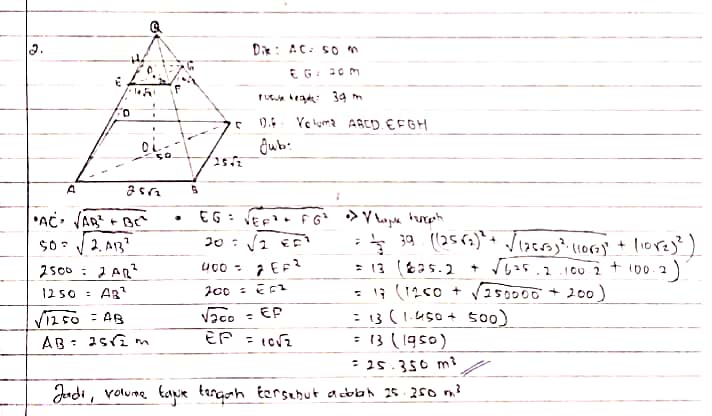 2.
Q
H
O
G
E
20
F
10√2
D
C
O
50
25√2
A
B
25√2
Dik : AC = 50 m
EG : 20 m
rusuk tegak : 39 m
Dit : Volume ABCD.EFGH
Jwb :
• AC = √AB² + BC²
50 = √2.AB²
2500 = 2AB²
1250 = AB²
√1250 = AB
AB = 25√2 m
• EG = √EF² + FG²
20 = √2 EF²
400 = 2 EF²
200 = EF²
√200 = EF
EF = 10√2
=> V tajuk tengah
= 1/3 39 ((25√2)² + √(25√2)².(10√2)² + (10√2)²)
= 13 (625.2 + √625.2.100.2 + 100.2)
= 13 (1250 + √250000 + 200)
= 13 (1.450 + 500)
= 13 (1950)
= 25.350 m³
Jadi, volume tajuk tengah tersebut adalah 25.350 m³